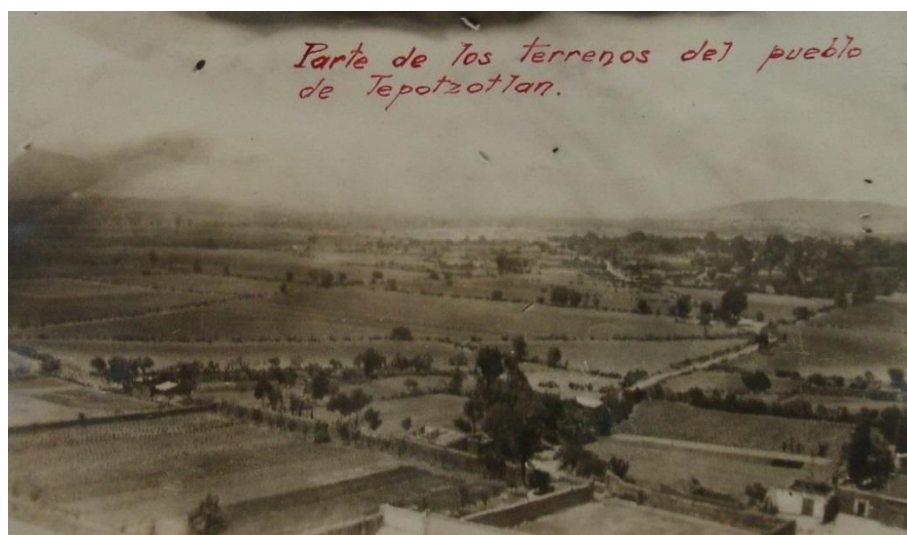 Parte de los terrenos del pueblo
de Tepotzotlan.